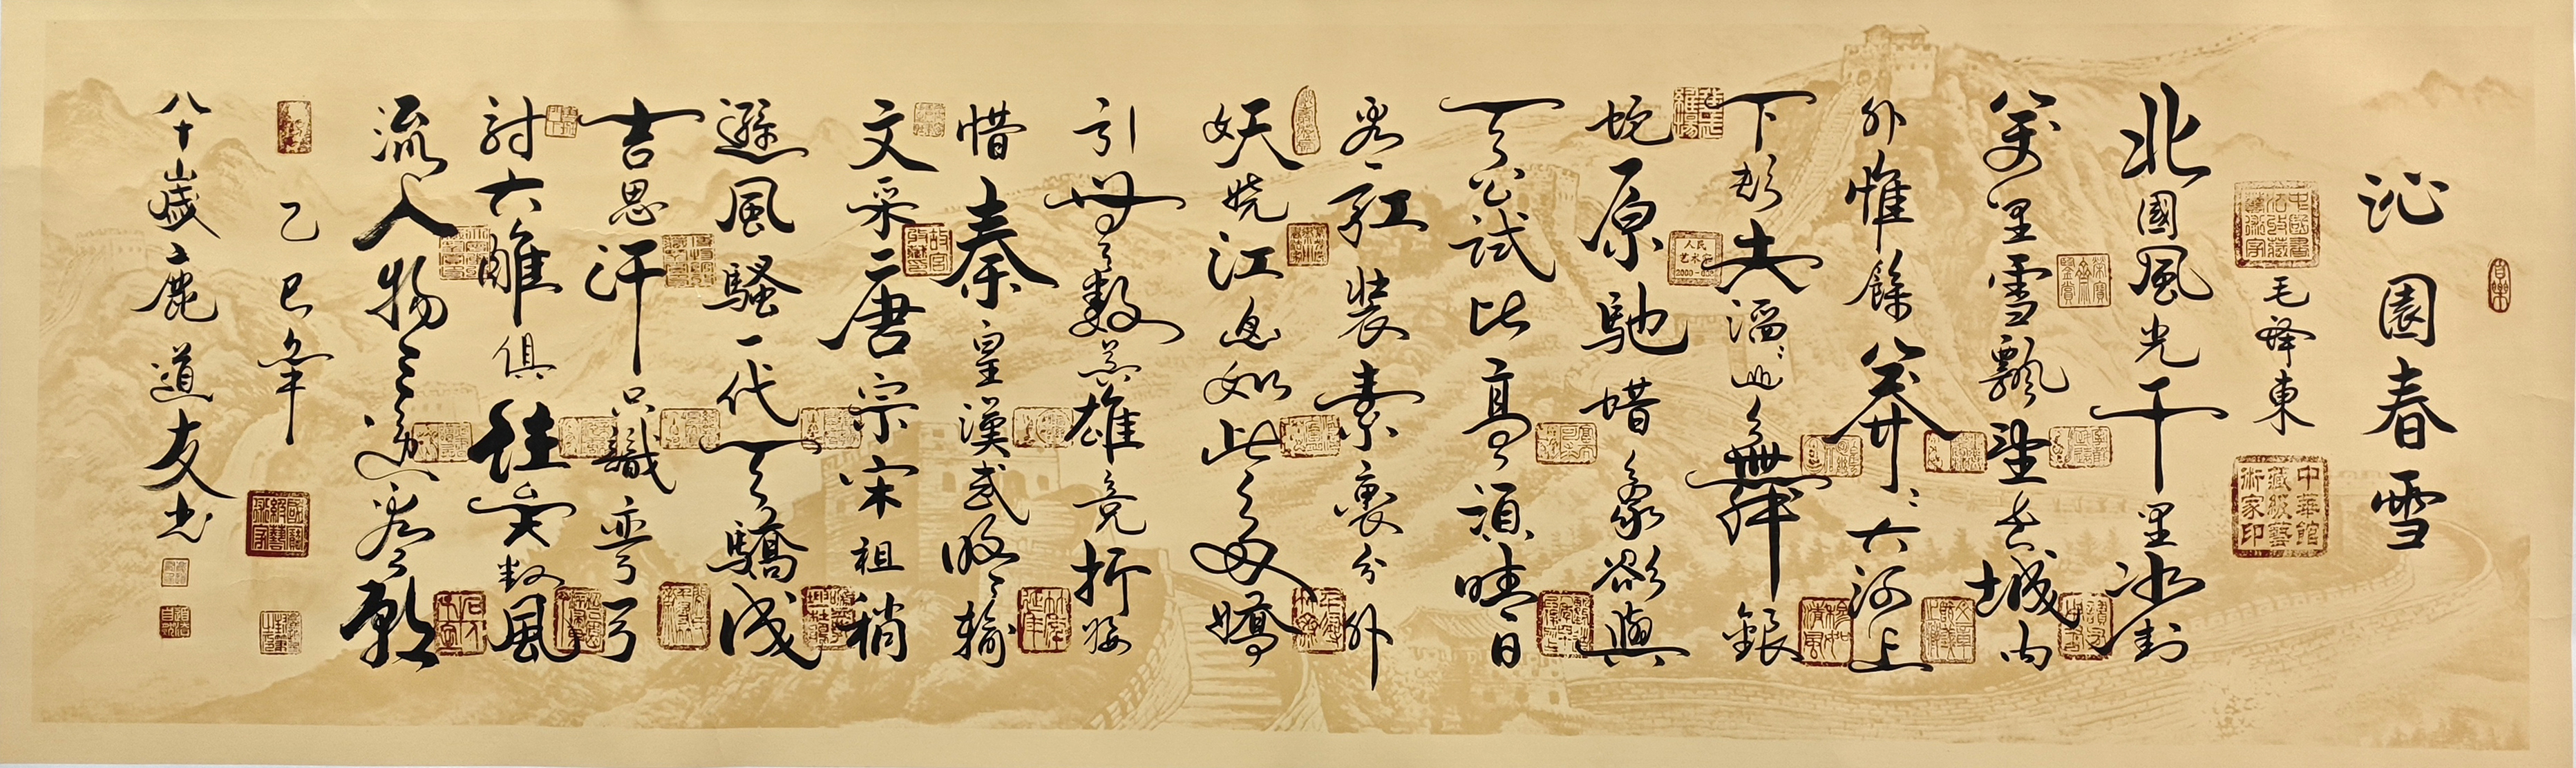 沁園春雪
毛澤東
北國風光千里冰封
萬里雪飄望長城内
外惟餘莽〻大河上
下頓失滔〻山舞銀
蛇原馳蜡象欲與
天公試比高須晴日
看紅裝素裹分外
妖嬈江山如此多嬌
引無數英雄競折腰
惜秦皇漢武略輸
文采唐宗宋祖稍
遜風騷一代天驕成
吉思汗只識彎弓
射大雕俱往矣數風
流人物還看今朝
乙巳年
八十歲鹿道友书
中華館藏級藝術家印
人民艺术家